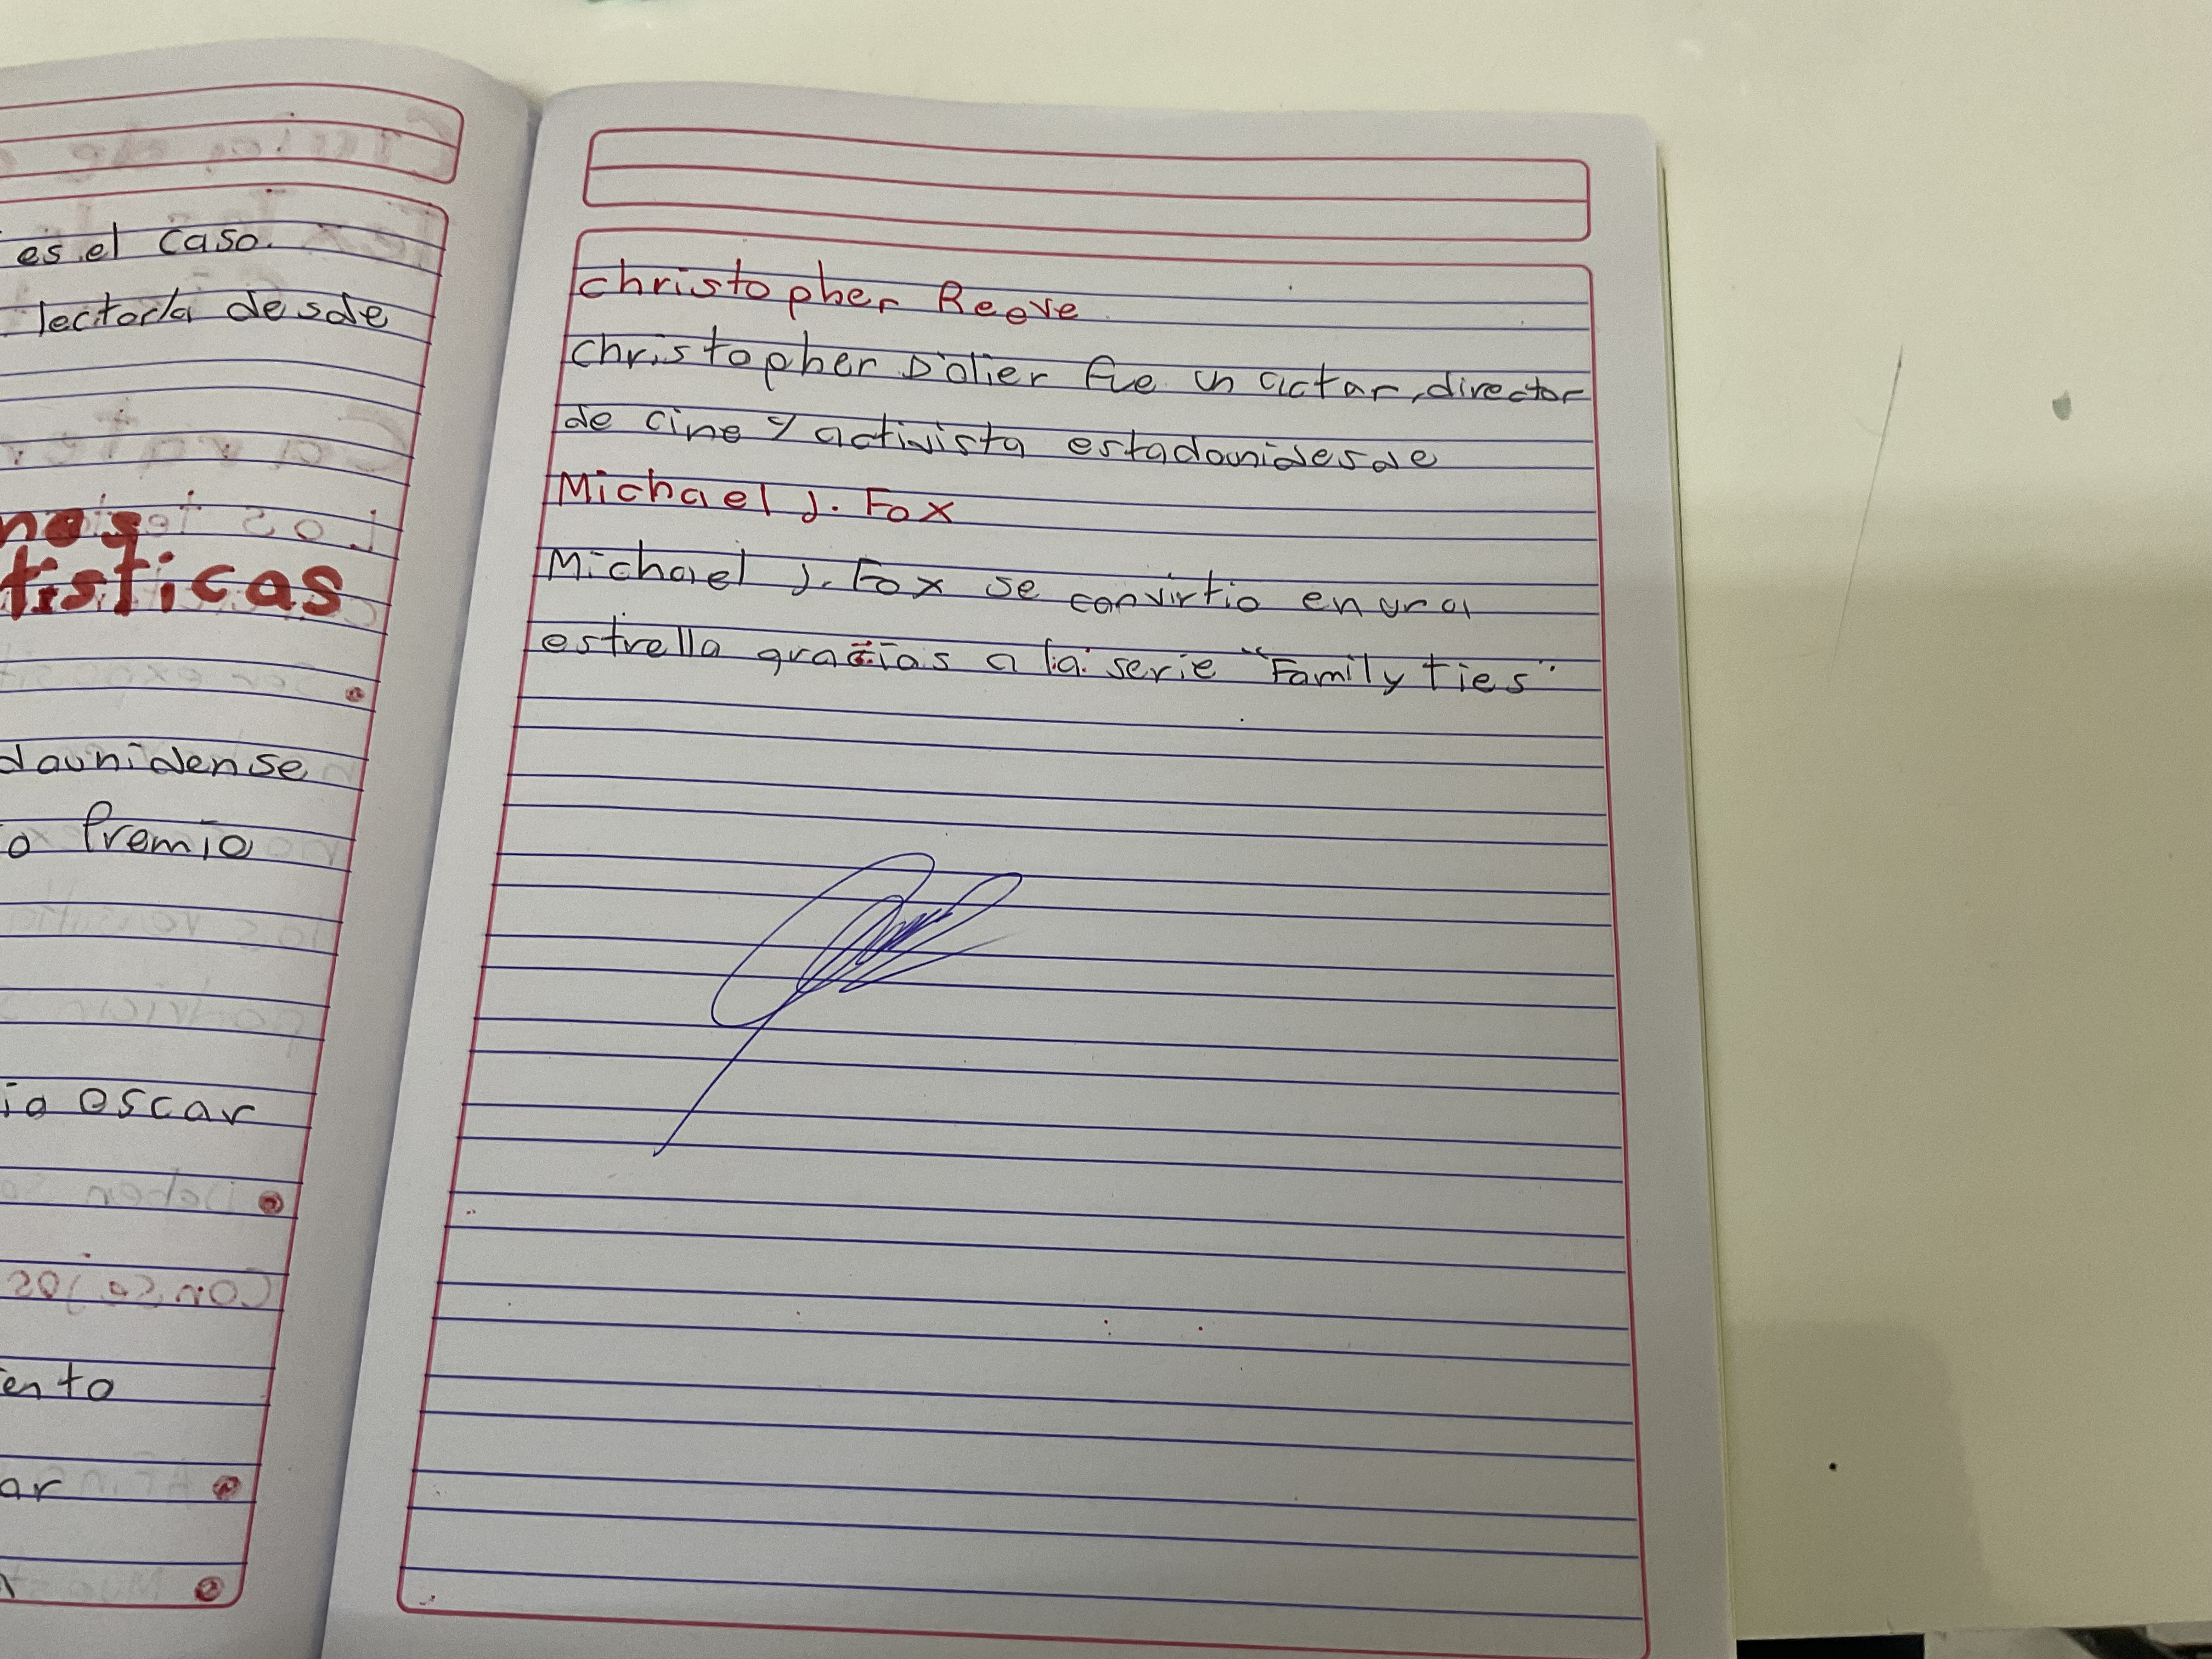 es el caso.
lectorla desde
nos
tisticas
dounidense
o Premio
io oscar
ento
ar
christopher Reeve
christopher D'olier fue un actor, director
de cine y activista estadounidesde
Michael J. Fox
Michael J. Fox se convirtio en una
estrella gracias a la serie "Family ties"